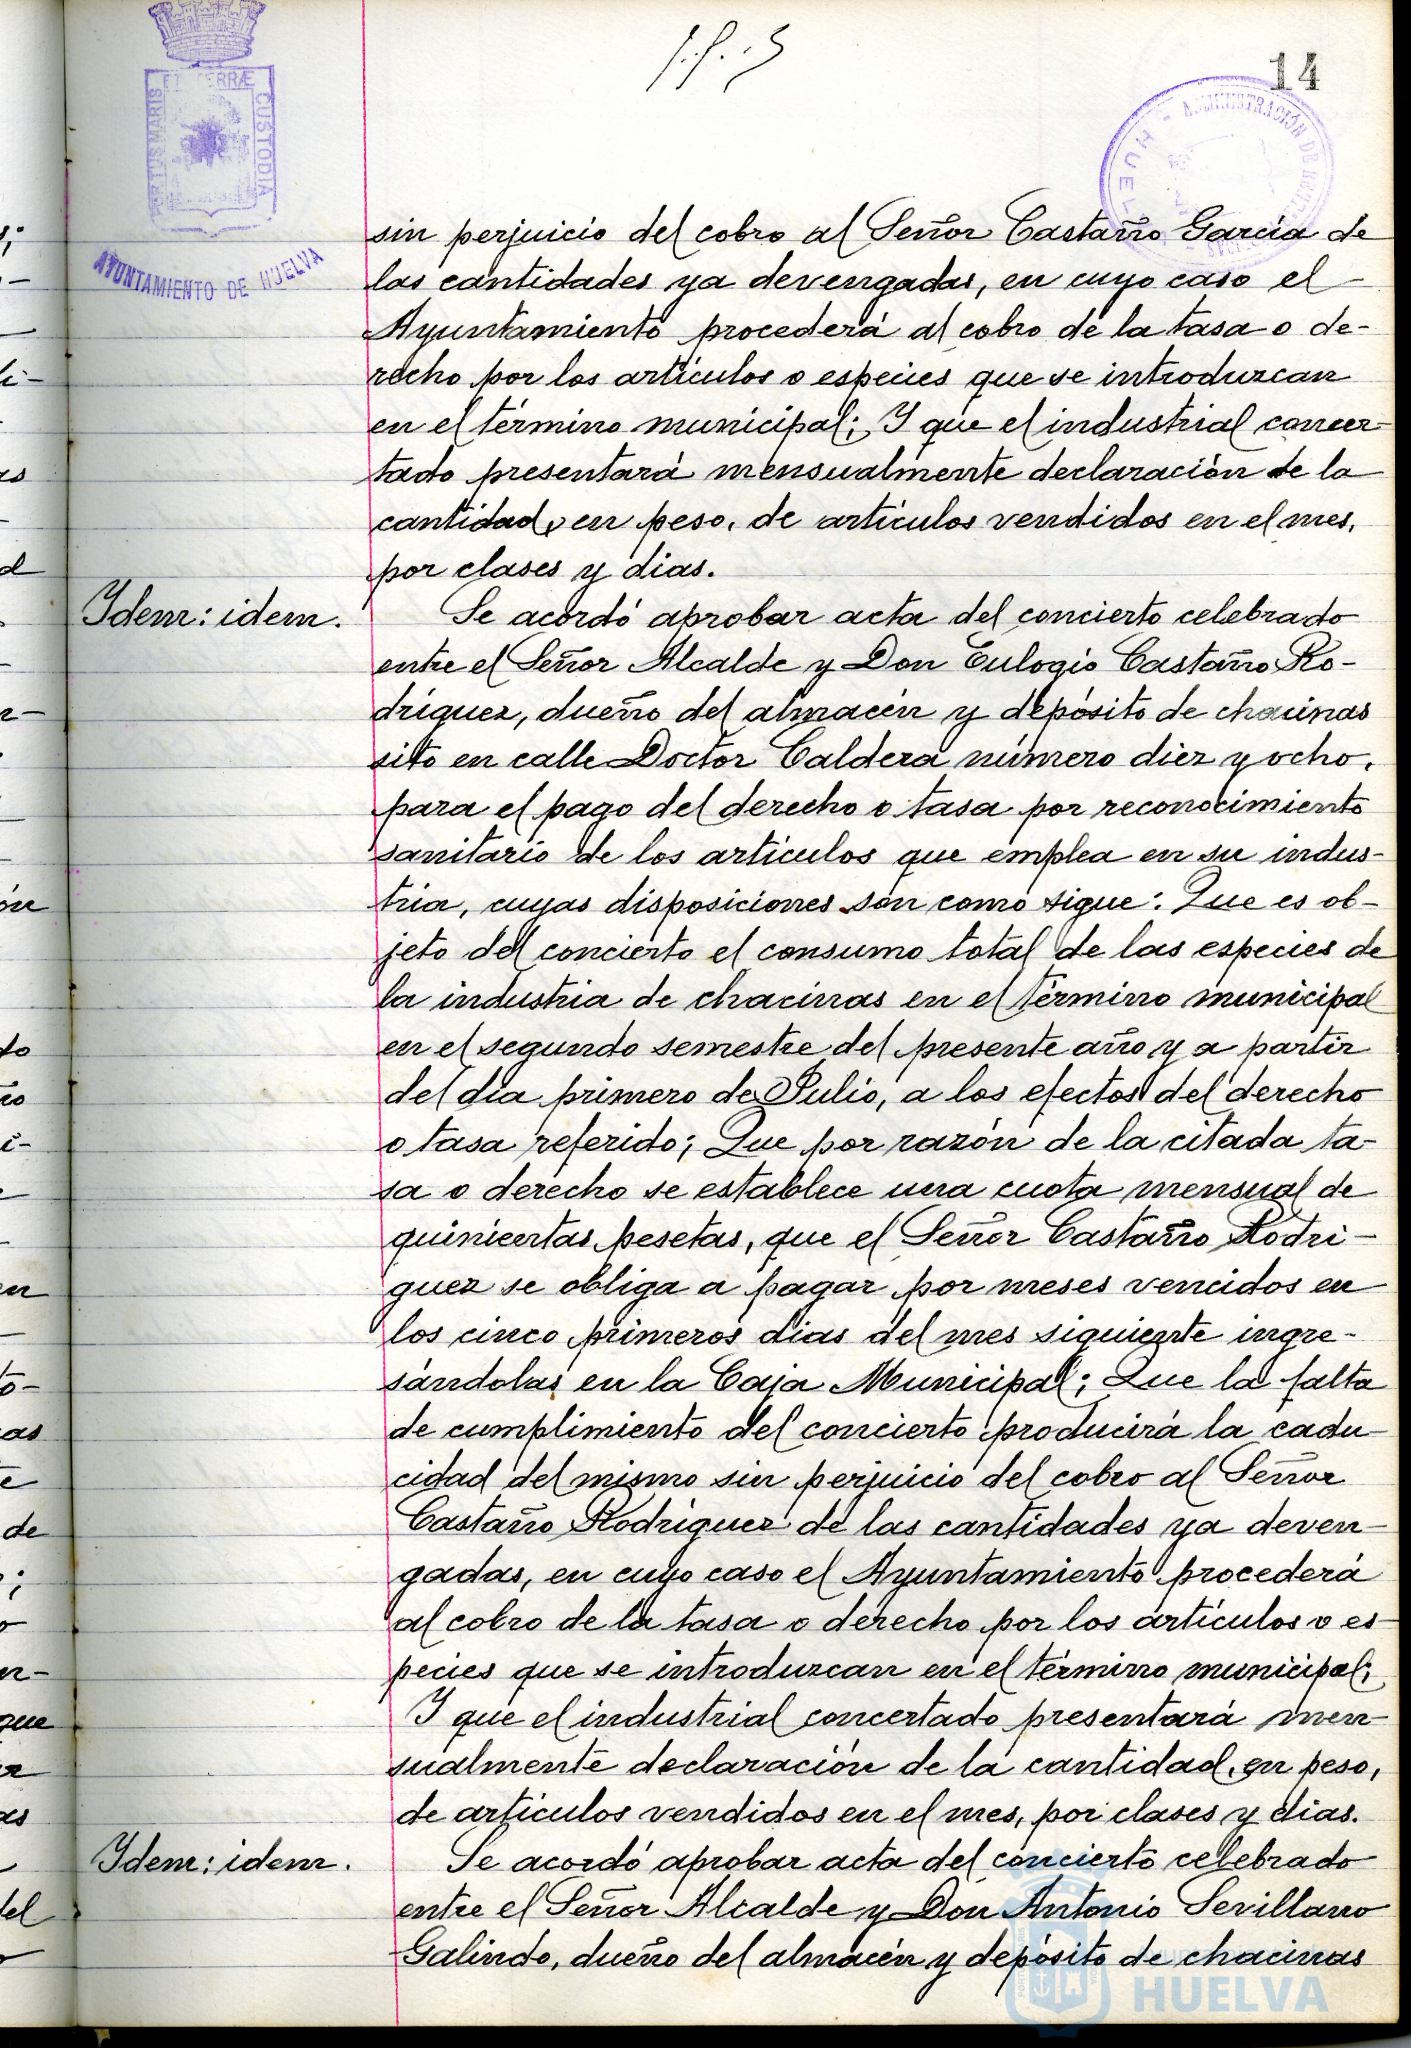 14
PORTUS MARIS
ET TERRÆ
CUSTODIA
AYUNTAMIENTO DE HUELVA
ADMINISTRACIÓN DE
HUELVA
sin perjuicio del cobro al Señor Castaño García de
las cantidades ya devengadas, en cuyo caso el
Ayuntamiento procederá al cobro de la tasa o de-
recho por los artículos o especies que se introduzcan
en el término municipal; Y que el industrial concer-
tado presentará mensualmente declaración de la
cantidad, en peso, de artículos vendidos en el mes,
por clases y dias.
Idem: idem.
Se acordó aprobar acta del concierto celebrado
entre el Señor Alcalde y Don Eulogio Castaño Ro-
dríguez, dueño del almacén y depósito de chacinas
sito en calle Doctor Caldera número diez y ocho,
para el pago del derecho o tasa por reconocimiento
sanitario de los artículos que emplea en su indus-
tria, cuyas disposiciones son como sigue: Que es ob-
jeto del concierto el consumo total de las especies de
la industria de chacinas en el término municipal
en el segundo semestre del presente año y a partir
del día primero de Julio, a los efectos del derecho
o tasa referido; Que por razón de la citada ta-
sa o derecho se establece una cuota mensual de
quinientas pesetas, que el Señor Castaño Rodri-
guez se obliga a pagar por meses vencidos en
los cinco primeros dias del mes siguiente ingre-
sándolas en la Caja Municipal; Que la falta
de cumplimiento del concierto producirá la cadu-
cidad del mismo sin perjuicio del cobro al Señor
Castaño Rodríguez de las cantidades ya deven-
gadas, en cuyo caso el Ayuntamiento procederá
al cobro de la tasa o derecho por los artículos o es-
pecies que se introduzcan en el término municipal;
Y que el industrial concertado presentará men-
sualmente declaración de la cantidad, en peso,
de artículos vendidos en el mes, por clases y dias.
Idem: idem.
Se acordó aprobar acta del concierto celebrado
entre el Señor Alcalde y Don Antonio Sevillano
Galindo, dueño del almacén y depósito de chacinas
HUELVA